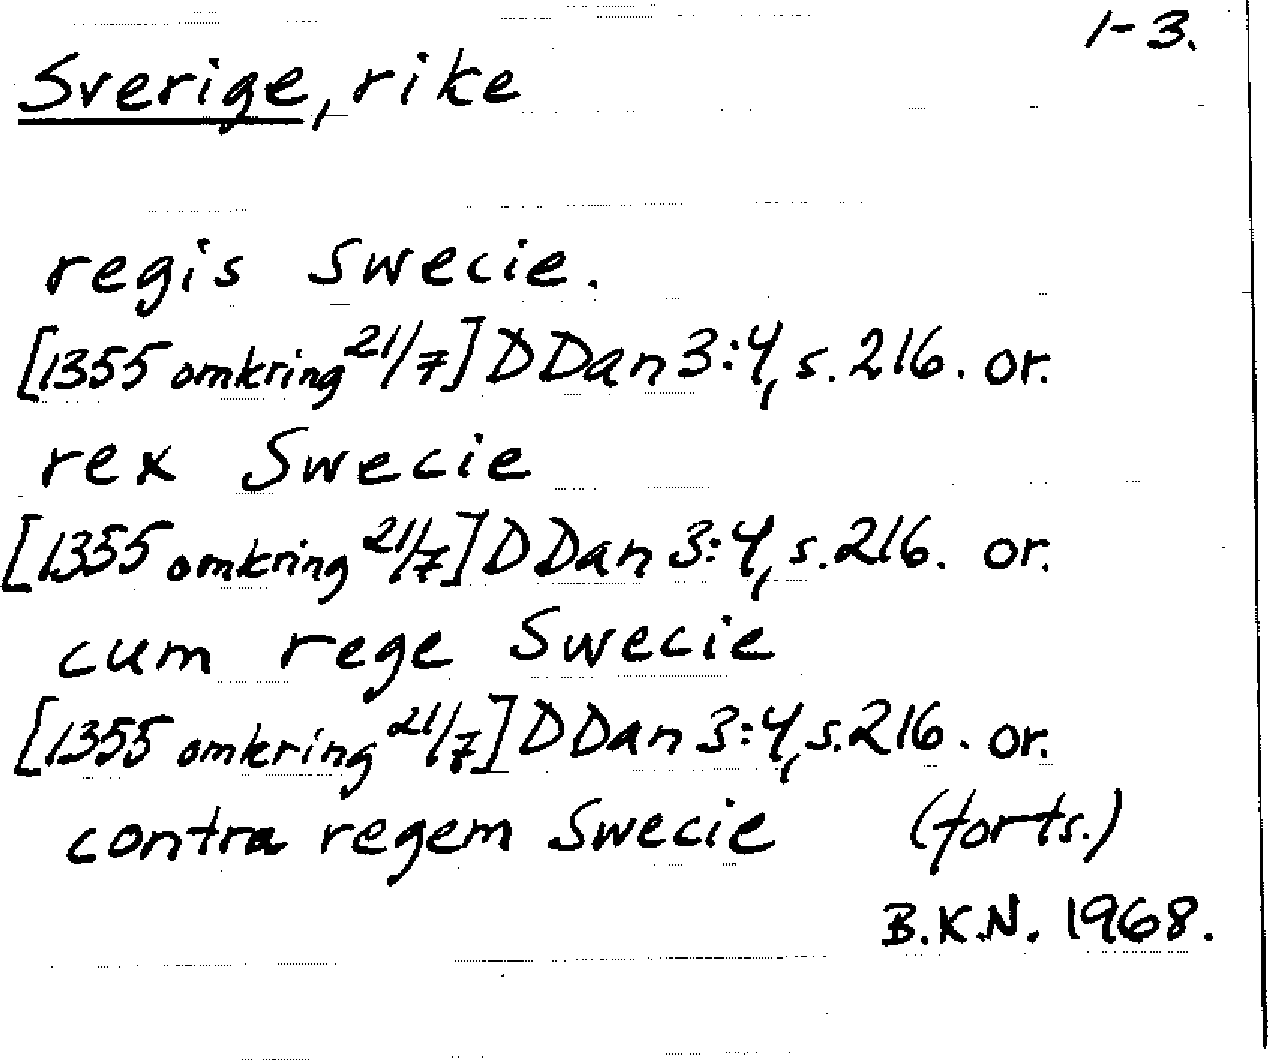 1-3.
Sverige, rike
regis Swecie.
[1355 omkring 21/7] D Dan 3:4, s. 216. or.
rex Swecie
[1355 omkring 21/7] D Dan 3:4, s. 216. or.
cum rege Swecie
[1355 omkring 21/7] D Dan 3:4, s. 216. or.
contra regem Swecie (forts.)
B.K.N. 1968.